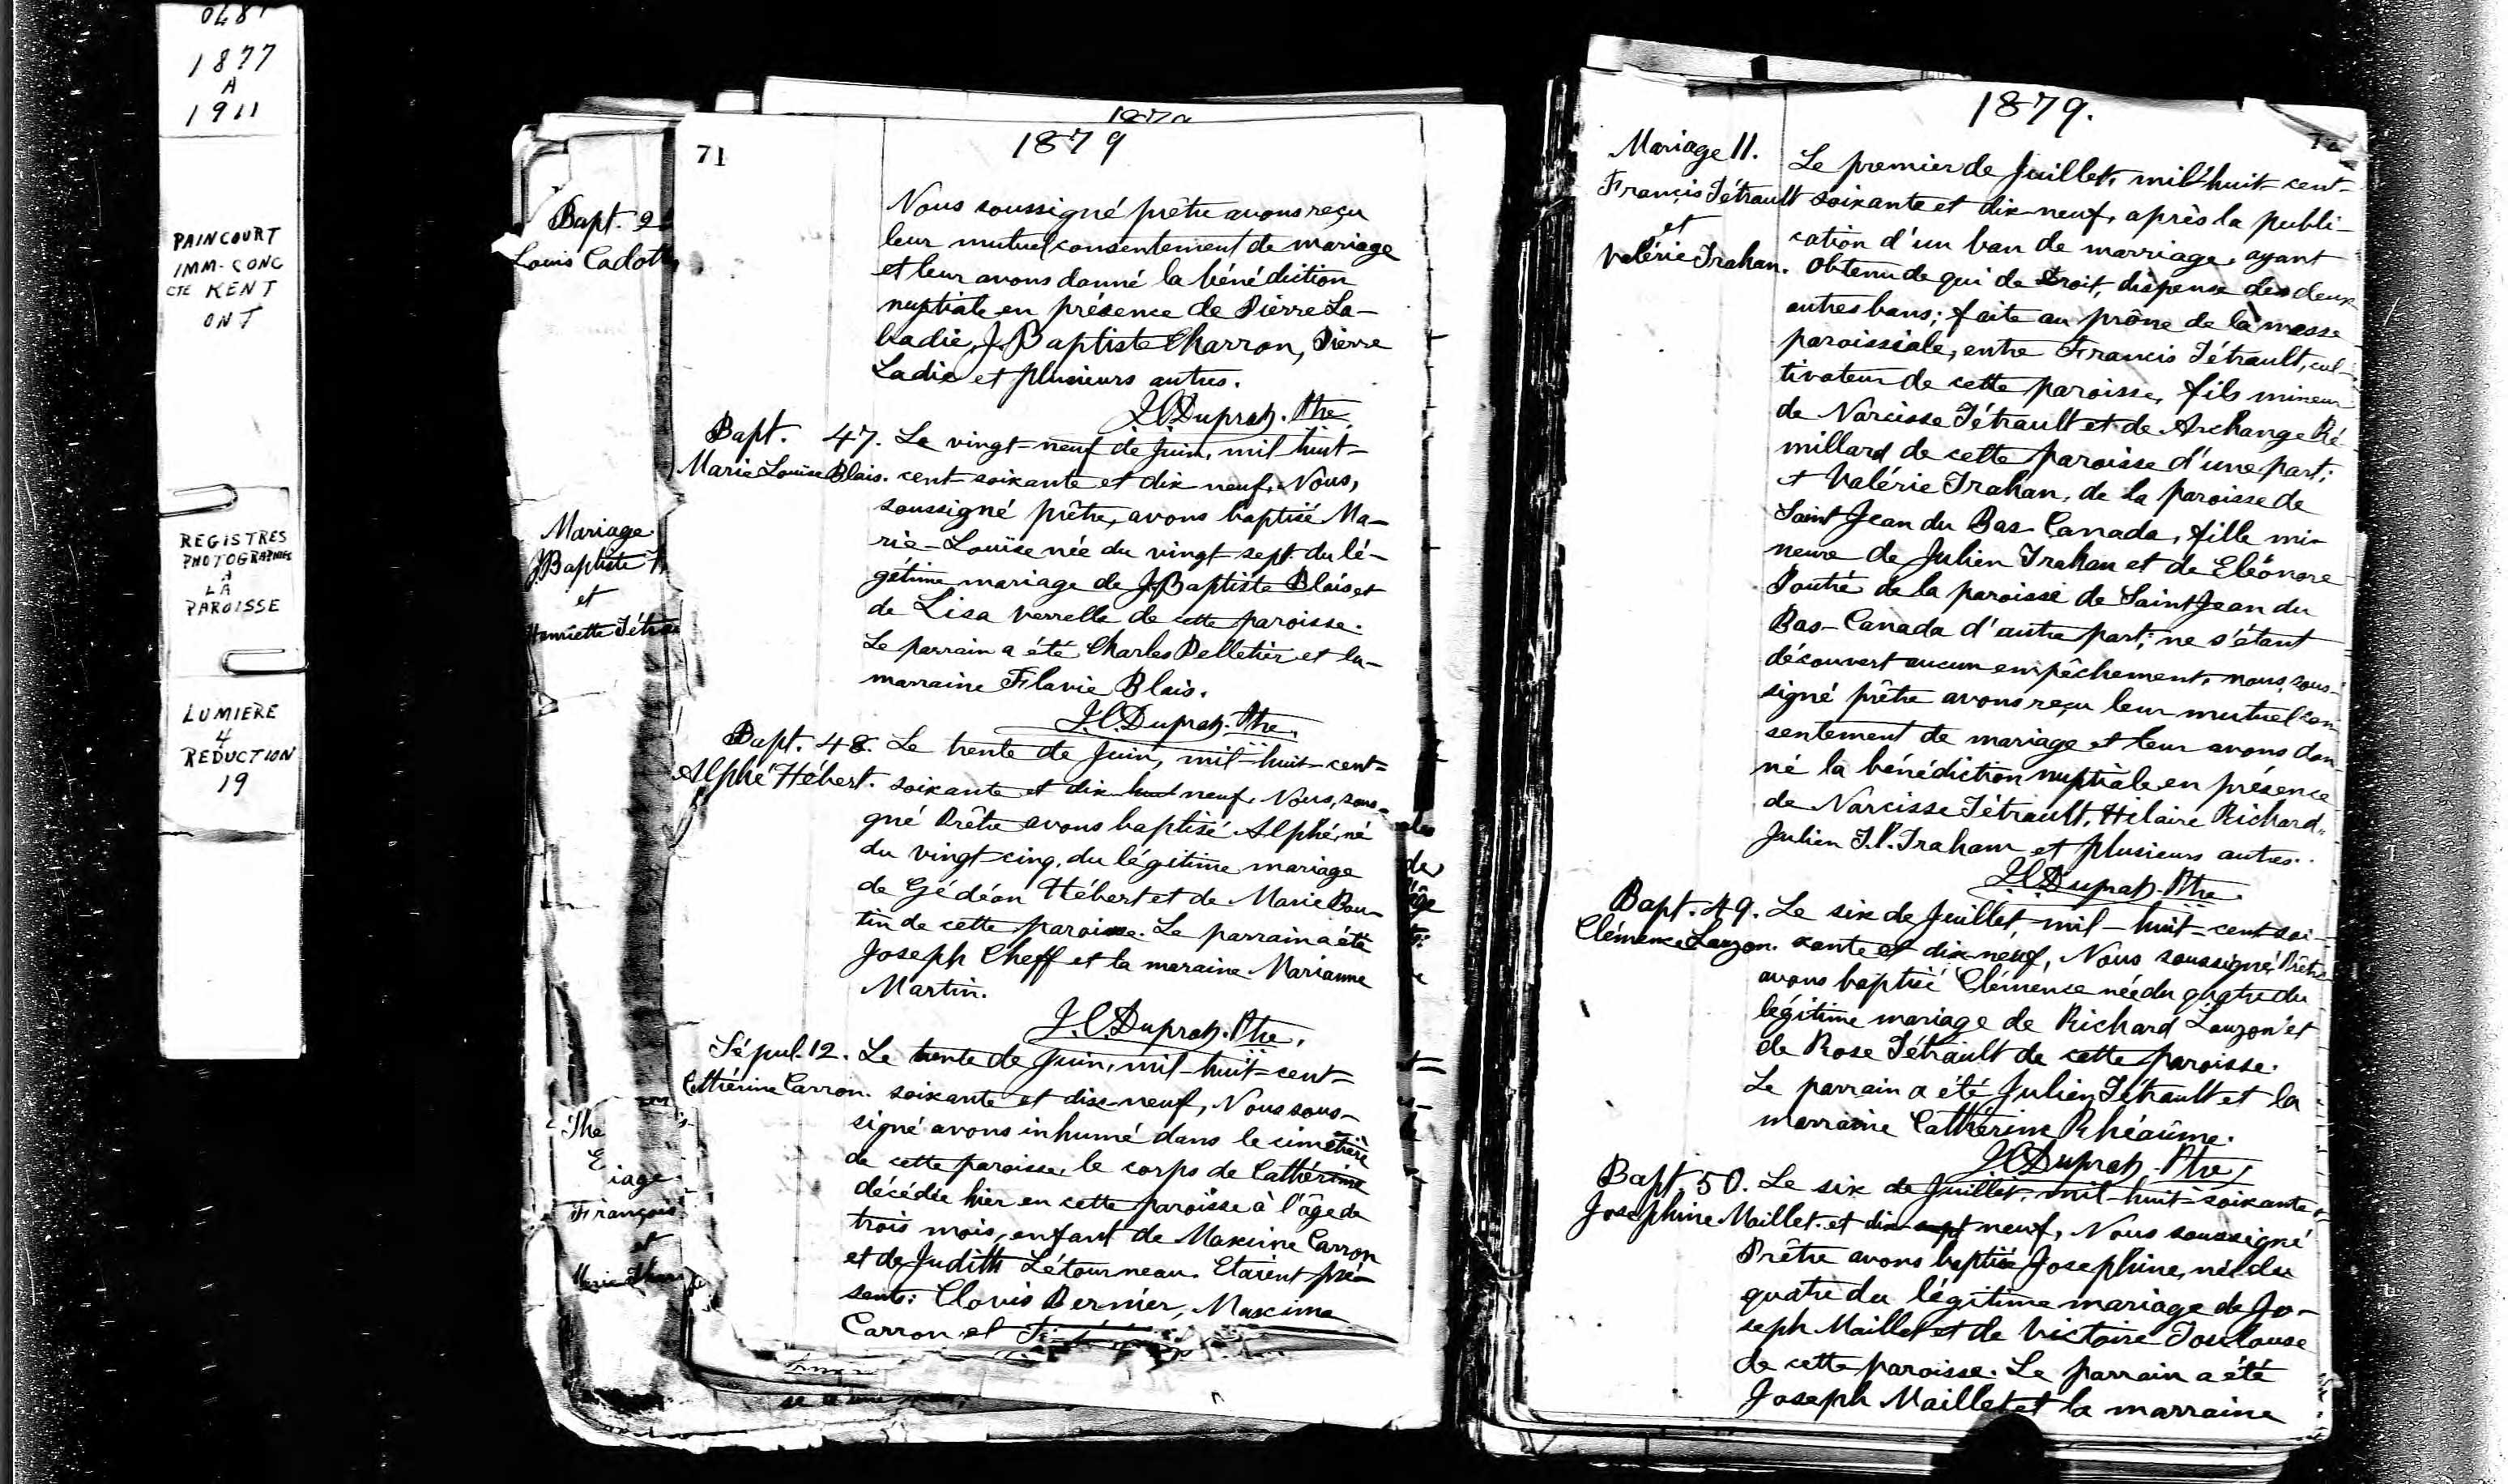 1877
A
1911
PAINCOURT
IMM-CONC
CTÉ KENT
ONT
REGISTRES
PHOTOGRAPHIÉS
A
LA
PAROISSE
LUMIERE
4
REDUCTION
19
Bapt. 2
Louis Cadott
Mariage
J Baptiste
et
Henriette Tétra
The
iage
François
et
71
1879
Nous soussigné prêtre avons reçu
leur mutuel consentement de mariage
et leur avons donné la bénédiction
nuptiale en présence de Pierre La-
badie, J. Baptiste Charron, Pierre
Ladie et plusieurs autres.
J.C.Duprat. Ptre.
Bapt. 47. Le vingt-neuf de Juin, mil huit-
Marie Louise Blais. cent-soixante et dix neuf, Nous,
soussigné prêtre, avons baptisé Ma-
rie-Louise née du vingt-sept du lé-
gétime mariage de J.Baptiste Blais et
de Lisa verrelle de cette paroisse.
Le parrain a été Charles Pelletier et la-
marraine Flavie Blais.
J.C.Duprat. Ptre.
Bapt. 48. Le trente de Juin, mil-huit-cent=
Alphé Hébert. soixante et dix huit neuf, Nous, sous-
gné Prêtre avons baptisé Alphé, né
du vingt-cinq, du légitime mariage
de Gédéon Hébert et de Marie Bou-
tin de cette paroisse. Le parrain a été
Joseph Cheff et la maraine Marianne
Martin.
J.C.Duprat. Ptre.
Sépul. 12. Le trente de Juin, mil-huit-cent=
Cathérine Carron. soixante et dix-neuf, Nous sous-
signé avons inhumé dans le cimetière
de cette paroisse, le corps de Cathérine
décédée hier en cette paroisse à l'âge de
trois mois, enfant de Maxime Carron
et de Judith Létourneau. Etaient pré-
sents: Clovis Bernier, Maxime
Carron et
1879.
Mariage 11. Le premier de Juillet, mil-huit-cent-
Francis Tétrault soixante et dix-neuf, après la publi-
et cation d'un ban de marriage, ayant
Valérie Trahan. obtenu de qui de droit, dispense des deux
autres bans; faite au prône de la messe
paroissiale, entre Francis Tétrault, cul-
tivateur de cette paroisse, fils mineur
de Narcisse Tétrault et de Archange Ré
millard de cette paroisse d'une part;
et Valérie Trahan, de la paroisse de
Saint Jean du Bas-Canada, fille mi-
neure de Julien Trahan et de Eléonore
Poutré de la paroisse de Saint Jean du
Bas-Canada d'autre part; ne s'étant
découvert aucun empêchement, nous, sous-
signé prêtre avons reçu leur mutuel con
sentement de mariage et leur avons don-
né la bénédiction nuptiale en présence
de Narcisse Tétrault, Hilaire Richard,
Julien J.P. Traham et plusieurs autres.
J.C.Duprat. Ptre
Bapt. 49. Le six de Juillet, mil-huit-cent soi-
Clémence Lauzon. xante et dix-neuf, Nous soussigné Prêtre
avons baptisé Clémence née du quatre du
légitime mariage de Richard Lauzon et
de Rose Tétrault de cette paroisse.
Le parrain a été Julien Tétrault et la
marraine Catherine Rhéaume.
J.C.Duprat. Ptre
Bapt. 50. Le six de Juillet, mil-huit-soixante
Josephine Maillet. et dix-sept neuf, Nous soussigné
Prêtre avons baptisé Josephine, née du
quatre du légitime mariage de Jo-
seph Maillet et de Victoire Toulouse
de cette paroisse. Le parrain a été
Joseph Maillet et la marraine